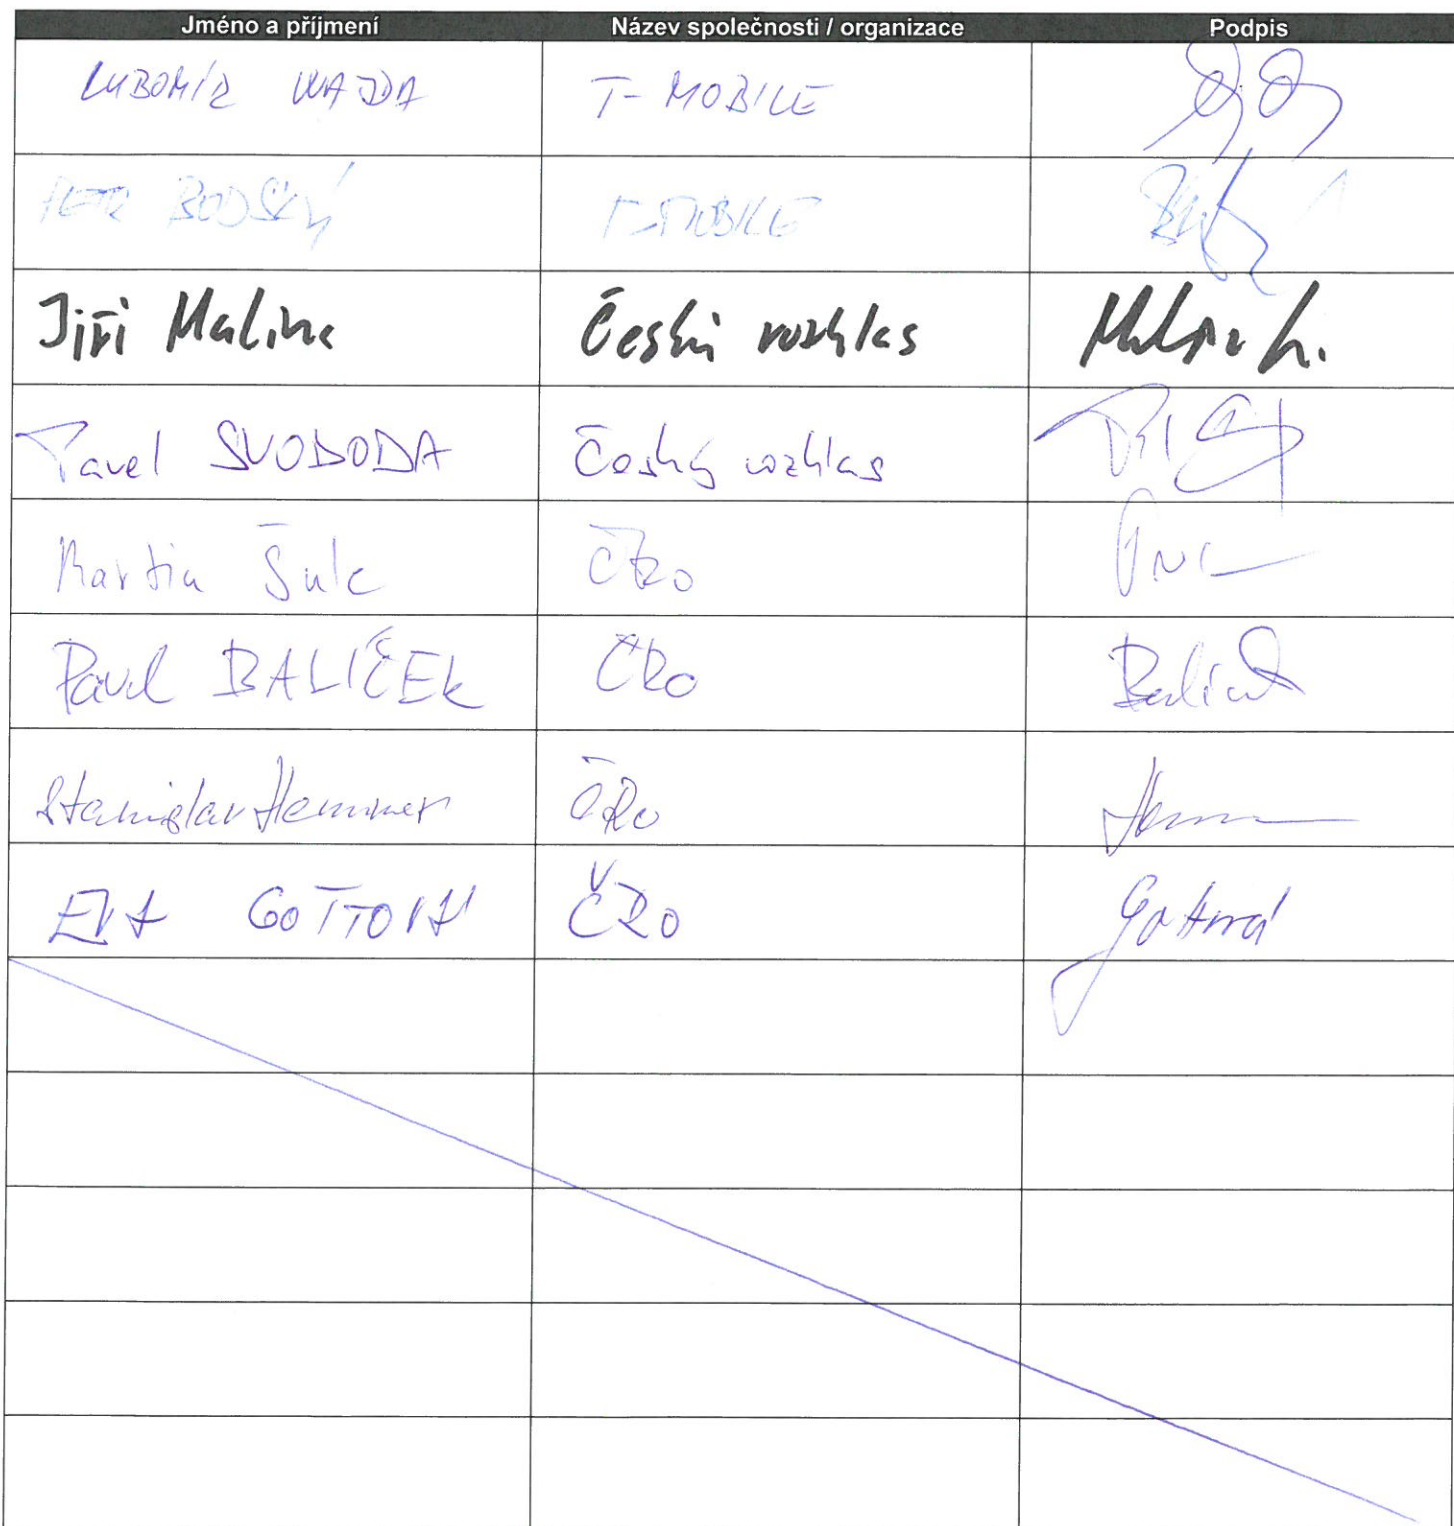 Jméno a příjmení Název společnosti / organizace Podpis
LUBOMÍR WAJDA T-MOBILE
PETR BODSKÝ T-MOBILE
Jiří Malina Český rozhlas
Pavel SVOBODA Český rozhlas
Martin Šulc ČRo
Pavel BALÍČEK ČRo
Stanislav Hammer ČRo
EVA GOTTOVÁ ČRO Gottová